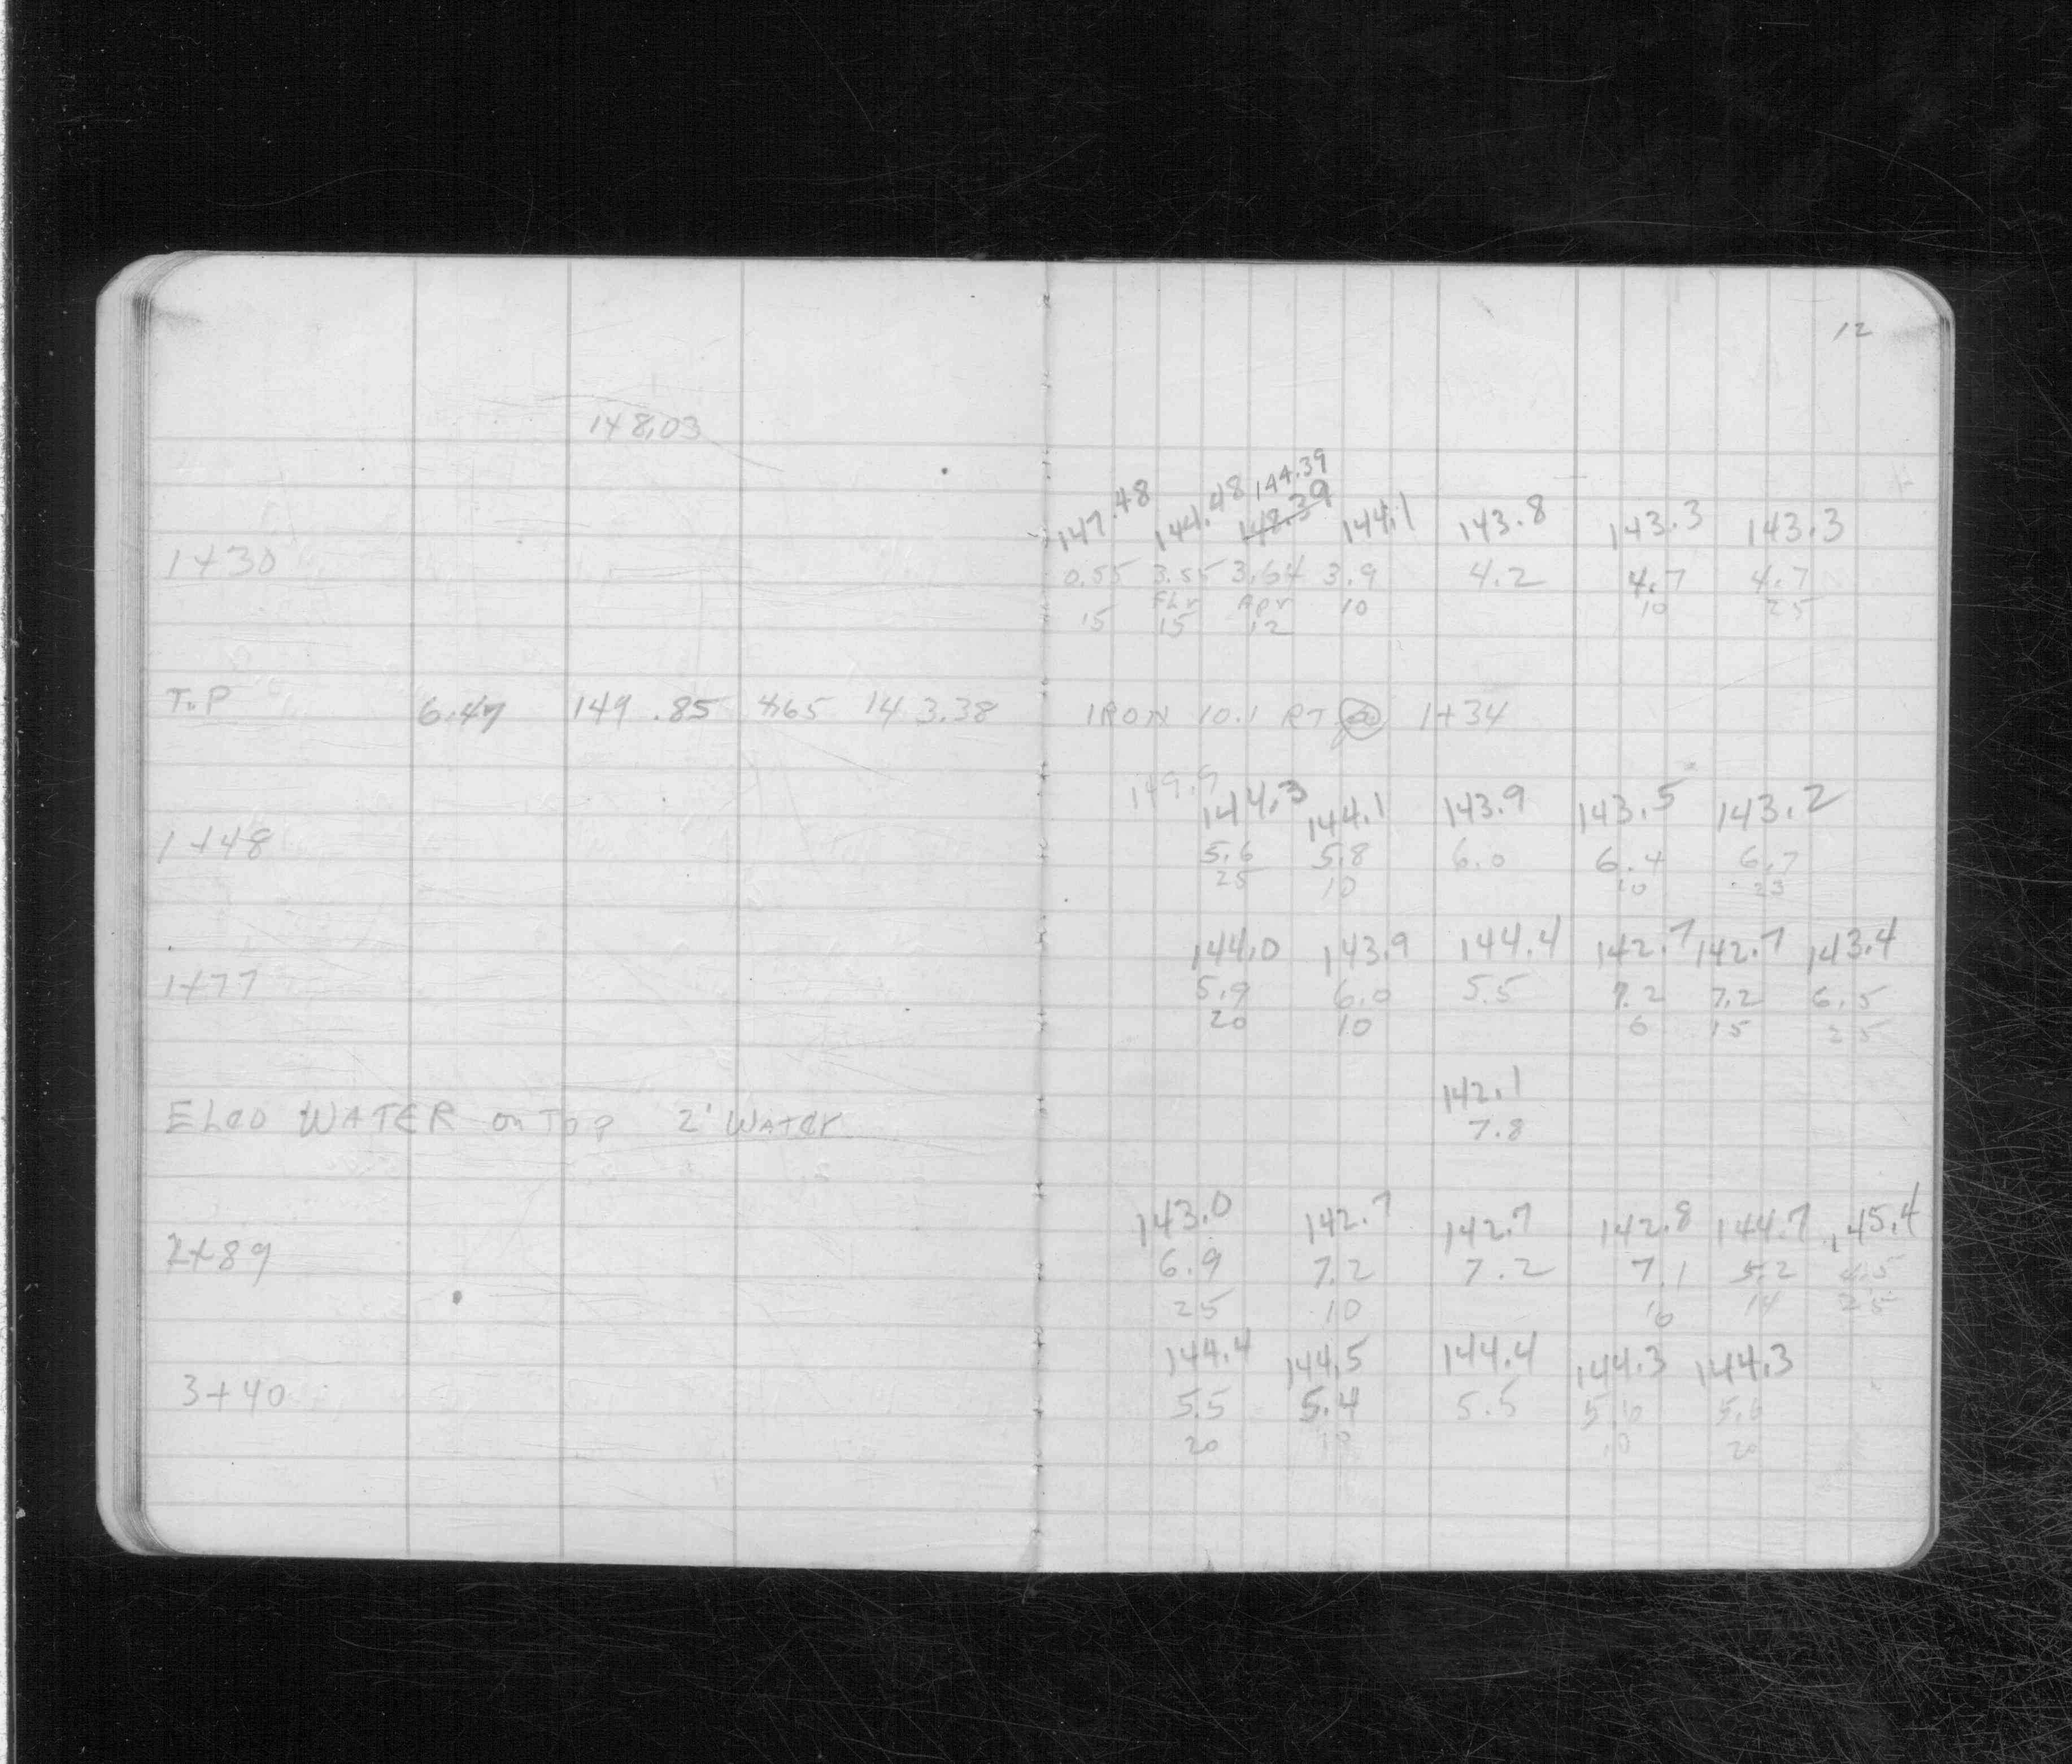 12
148.03
147.48 144.48 144.39
148.39 144.1 143.8 143.3 143.3
1+30 0.55 3.55 3.64 3.9 4.2 4.7 4.7
Flr Apr 10 10 25
15 15 12
T.P 6.47 149.85 4.65 143.38 IRON 10.1 RT @ 1+34
149.9
144.3 144.1 143.9 143.5 143.2
1+48 5.6 5.8 6.0 6.4 6.7
25 10 10 23
144.0 143.9 144.4 142.7 142.7 143.4
1+77 5.9 6.0 5.5 7.2 7.2 6.5
20 10 6 15 25
142.1
WATER on Top 2' Water 7.8
143.0 142.7 142.7 142.8 144.7 145.4
2+89 6.9 7.2 7.2 7.1 5.2 4.5
25 10 10 14 25
144.4 144.5 144.4 144.3 144.3
3+40 5.5 5.4 5.5 5.6 5.6
20 10 10 20